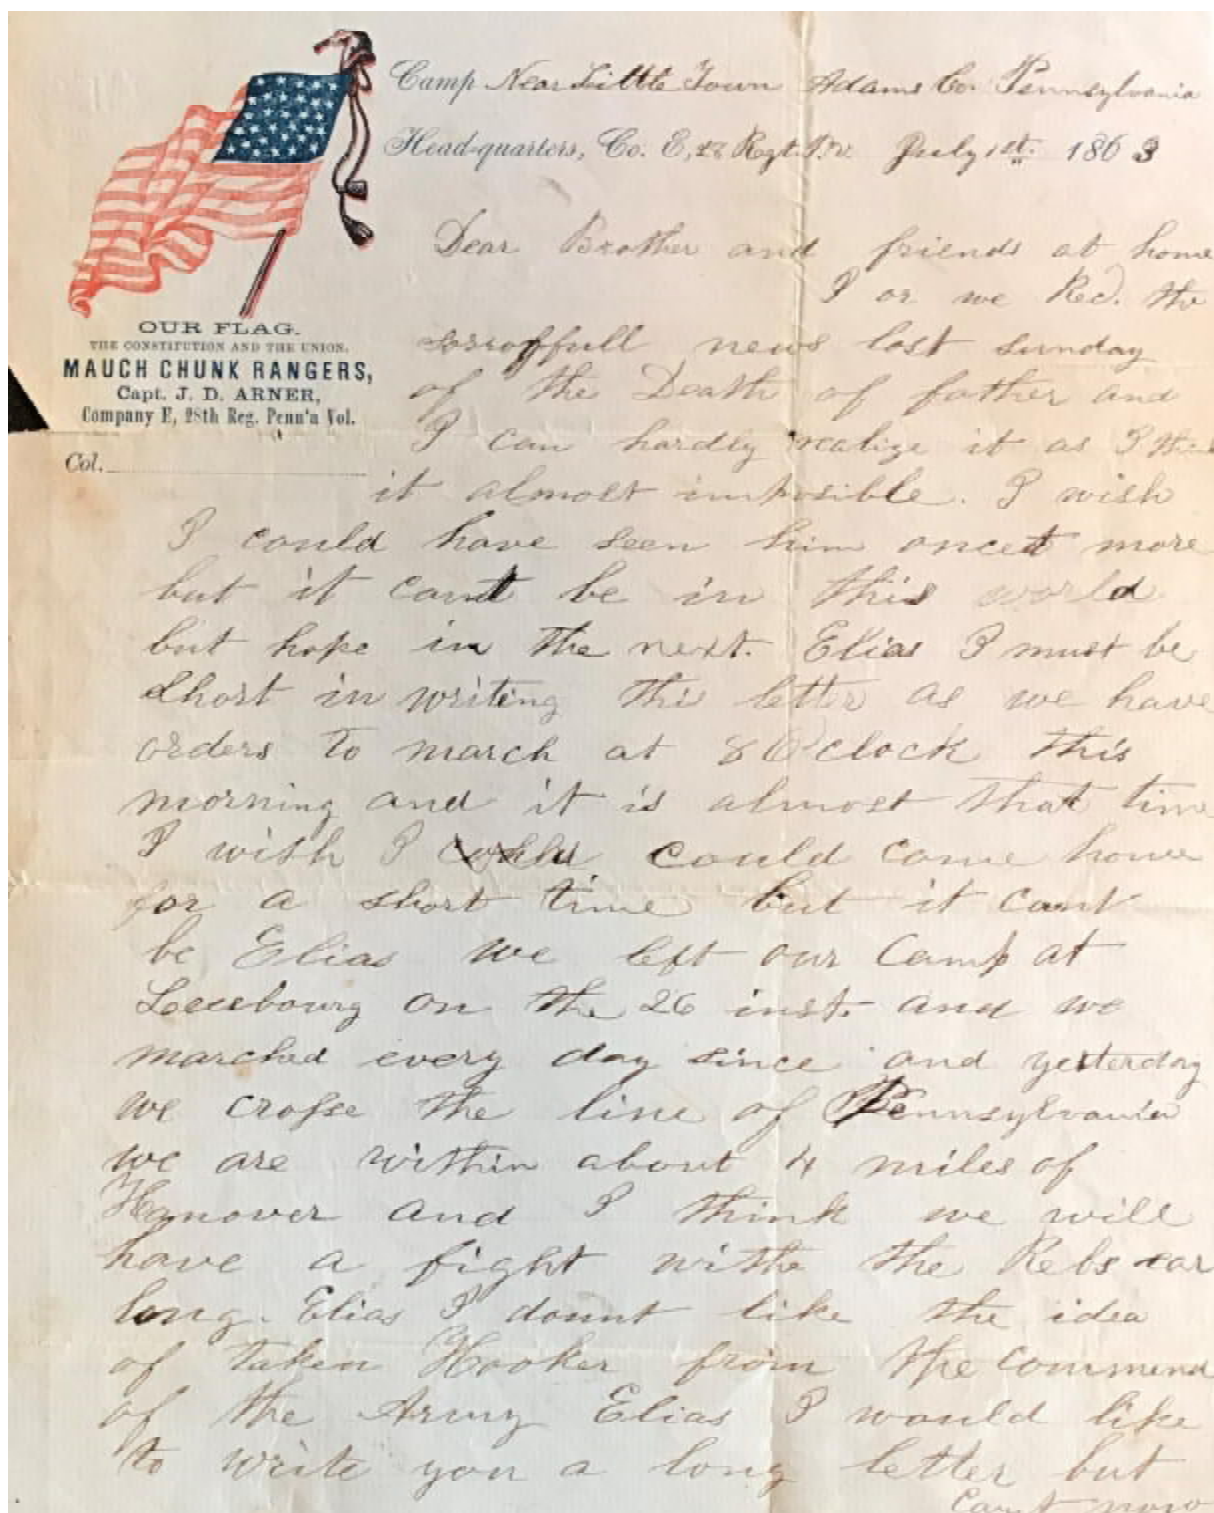 Camp Near Little Town Adams Co. Pennsylvania
Head-quarters, Co. E, 28 Regt. P.V. July 1st. 1863
OUR FLAG.
THE CONSTITUTION AND THE UNION.
MAUCH CHUNK RANGERS,
Capt. J. D. ARNER,
Company E, 28th Reg. Penn'a Vol.
Col.
Dear Brother and friends at home
I or we Recd. the
sorroffull news last sunday
of the Death of father and
I can hardly realize it as I think
it almost imposible. I wish
I could have seen him oncet more
but it cant be in this world
but hope in the next. Elias I must be
short in writing this letter as we have
orders to march at 8 O'clock this
morning and it is almost that time
I wish I could could come home
for a short time but it cant
be Elias we left our Camp at
Leesbourg on the 26 inst. and we
marched every day since and yesterday
we crosse the line of Pennsylvania
we are within about 4 miles of
Hanover and I think we will
have a fight withe the Rebs ear
long. Elias I dount like the idea
of taken Hooker from the commend
of the Army Elias I would like
to write you a long letter but
Can't now